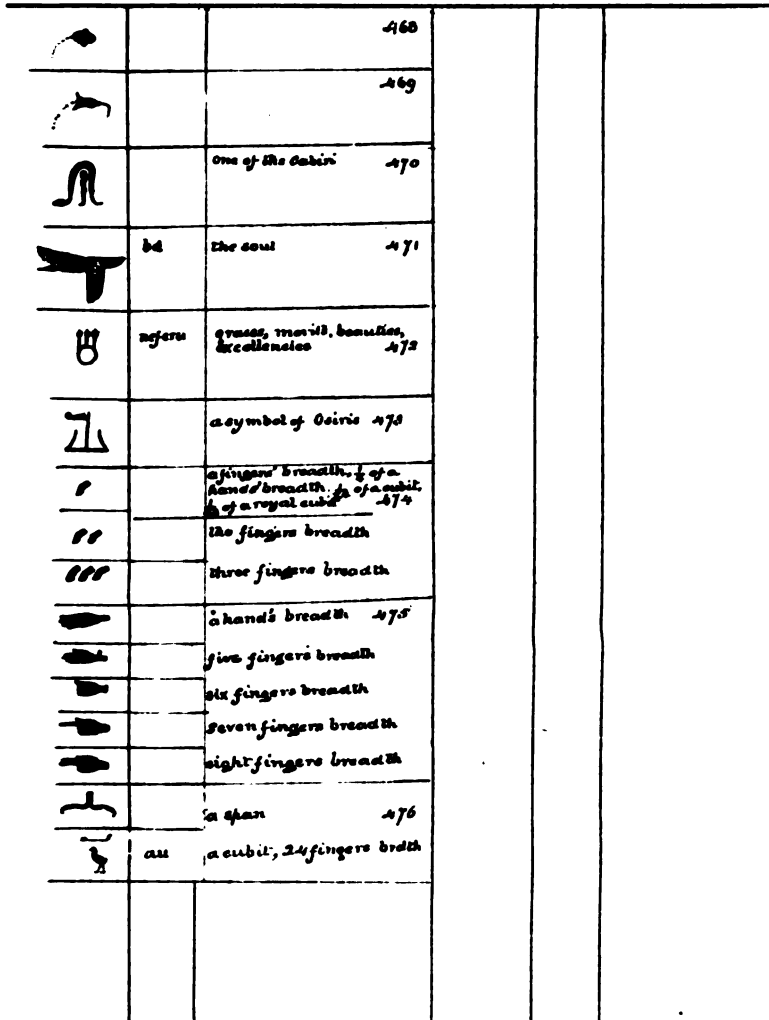 468
469
One of the Cabiri 470
ba the soul 471
neferu graces, merits, beauties,
excellencies 472
a symbol of Osiris 473
a fingers' breadth, ¼ of a
hands' breadth. of a cubit,
of a royal cubit 474
two fingers breadth
three fingers breadth
a hand's breadth 475
five fingers breadth
six fingers breadth
seven fingers breadth
eight fingers breadth
a span 476
au a cubit, 24 fingers brdth